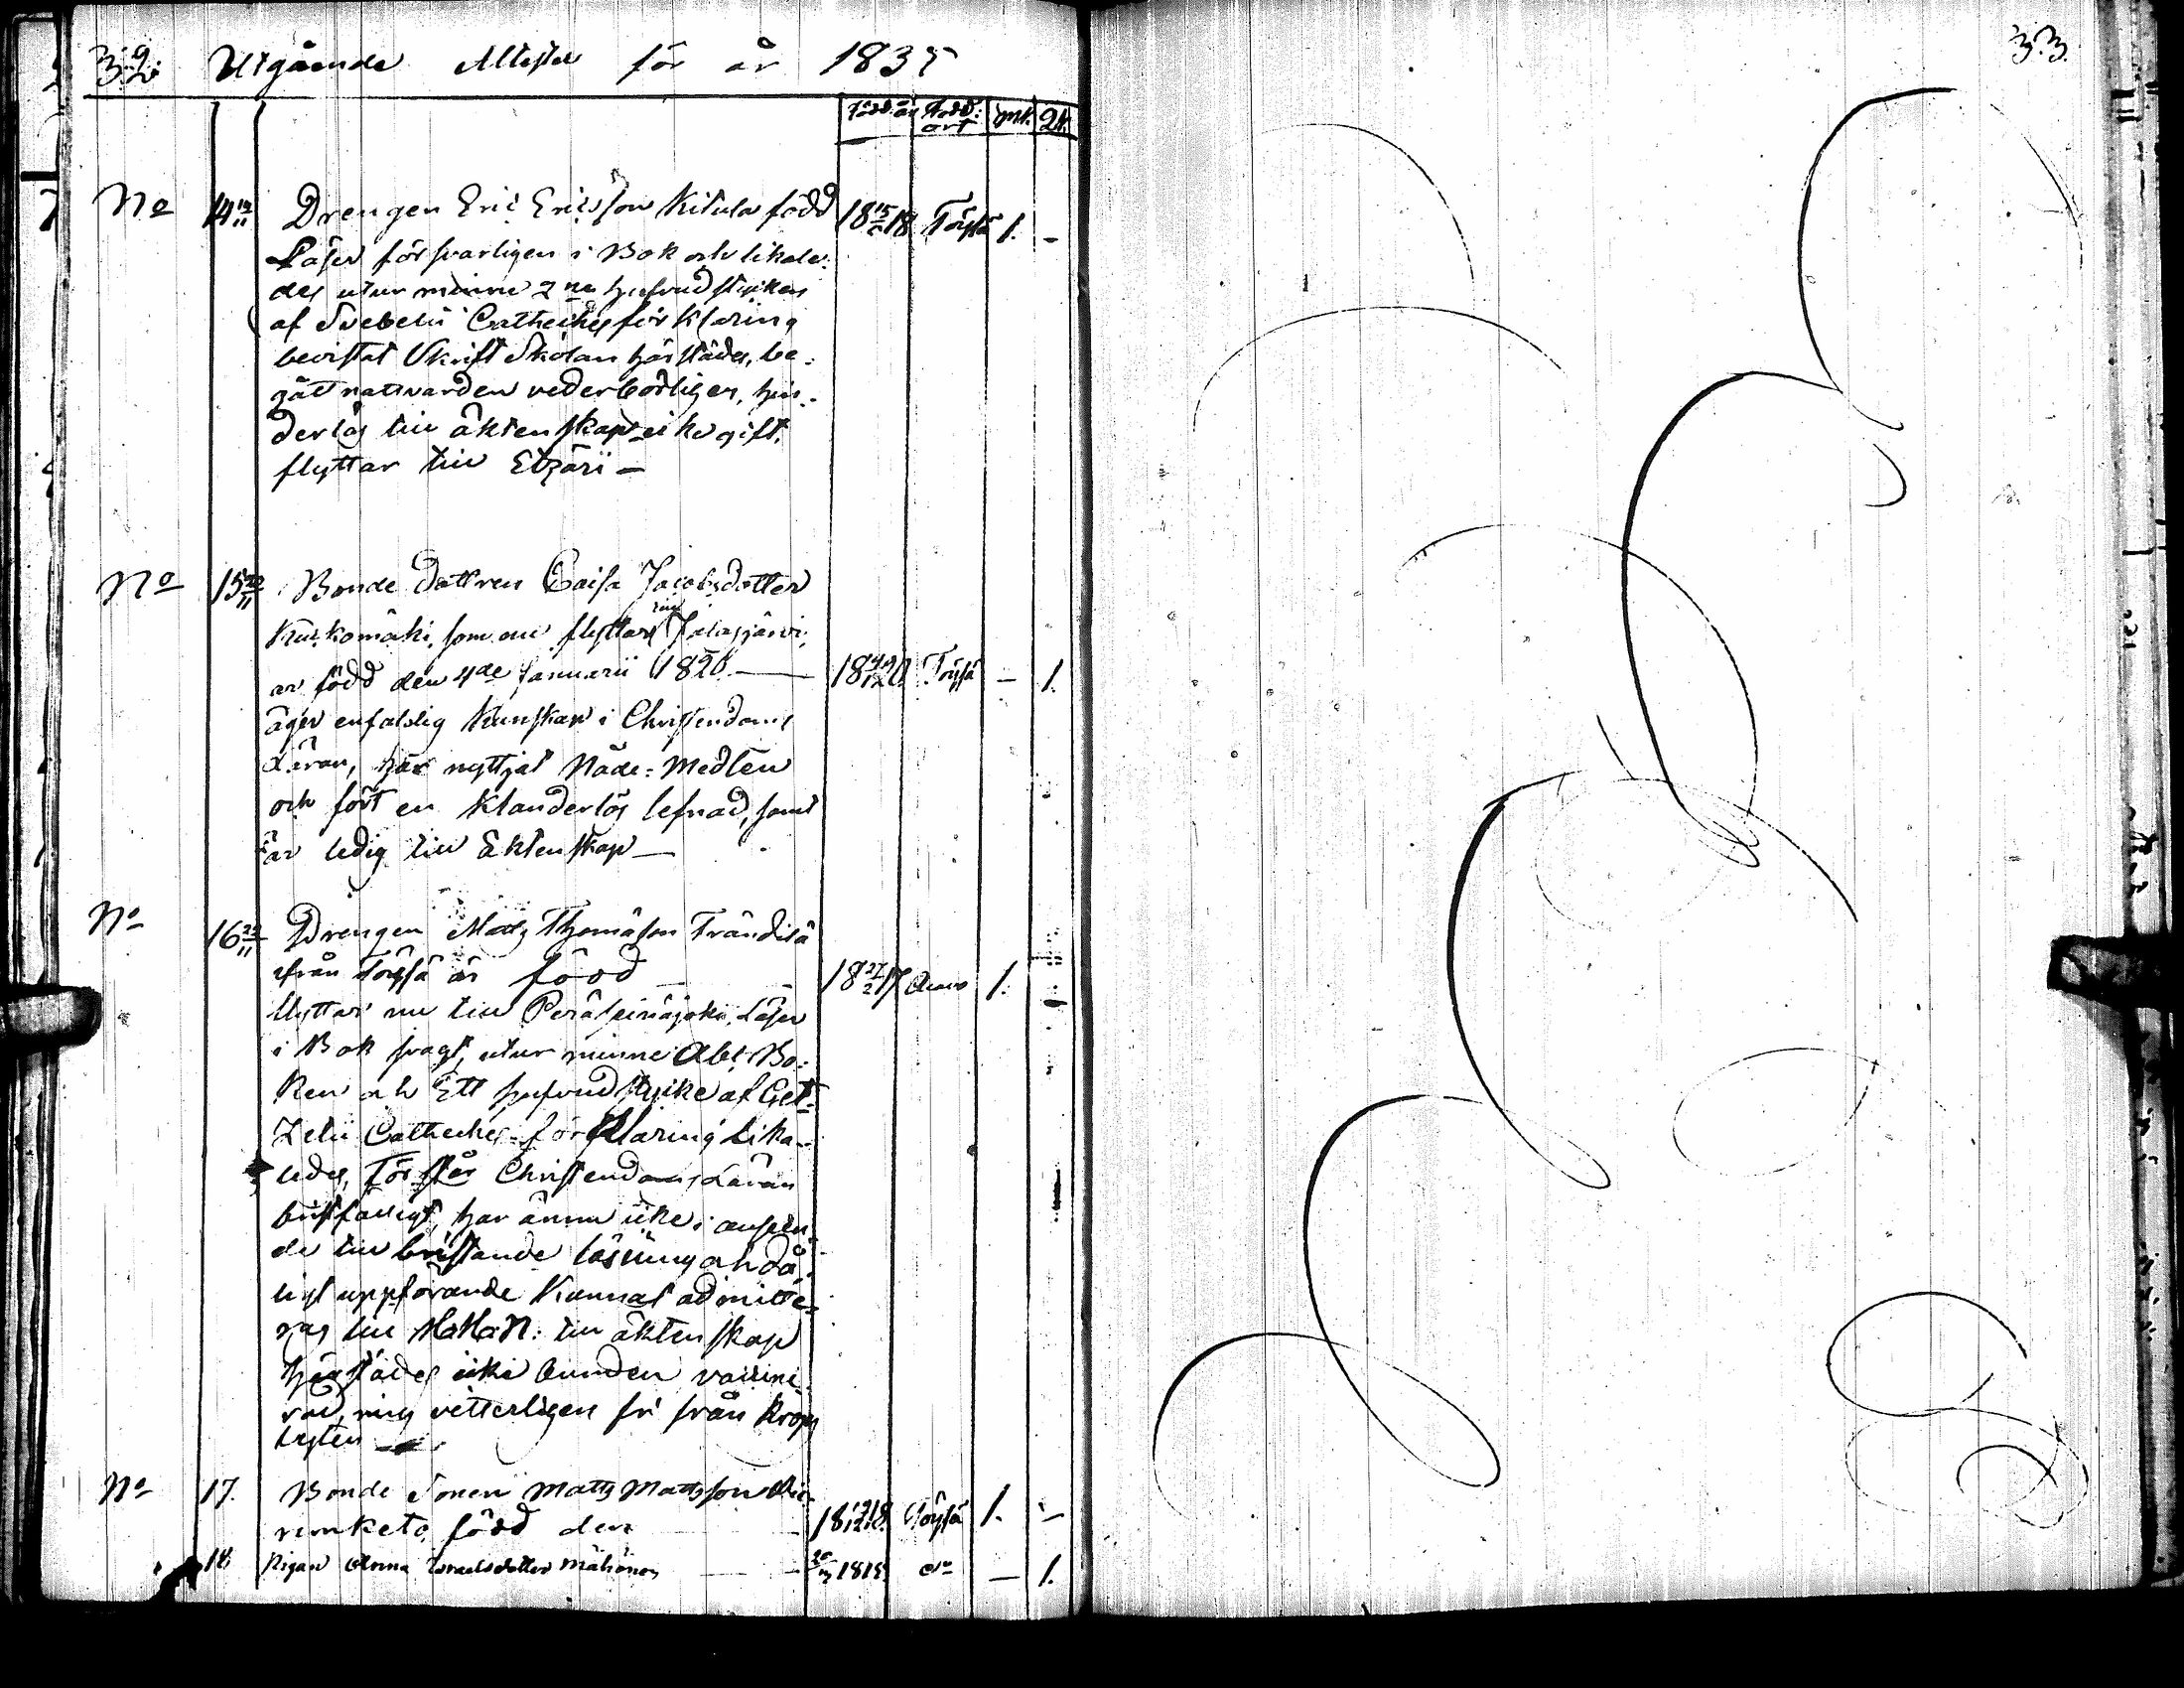 32. Utgående Attester för år 1835
33.
född: år född: ort Mk. Qk.
No 14 14/11 Drengen Eric Ericsson Kitula född 18 15/6 18 Töysä 1. -
Läser försvarligen i Bok och likale:
des utur minne 2ne hufvudstycken
af Svebelii Catheches förklaring
bevistat Skrift Skolan härstädes, be:
gått nattvarden vederbörligen, hin:
derlös till äktenskap icke gift,
flyttar till Etzäri —
No 15 22/11 Bonde Dottren Caisa Jacobsdotter
Kurkomäki som nu flyttar till Jalasjärvi,
är född den 4de Januarii 1820 — 18 4/1 20. Töysä - 1.
äger enfaldig kunskap i Christendoms
Läran, har nyttjat Nåde-Medlen
och fört en klanderlös lefnad, samt
är ledig till Äktenskap —
No 16 22/11 Drengen Mats Thomasson
ifrån Töysä är född 18 27/2 17 1.
flyttar nu till Peräseinäjoki, Läser
i Bok svagt, utur minne Abc Bo:
ken och Ett hufvudstycke af Get:
zelii Catheches-förklaring lika-
ledes, Förstår Christendoms Läran
bristfälligt, har ännu icke i anseen
de till bristande läsning och då:
ligt uppförande kunnat admitte-
ras till H.H.N: till äktenskap
härstädes icke bunden
mig vitterligen fri från krops
lysten —
No 17. Bonde Sonen Matts Mattsson
född den 1818. Töysä 1. -
18. Pigan Anna Israelsdotter Mähönen — 1815. do — 1.